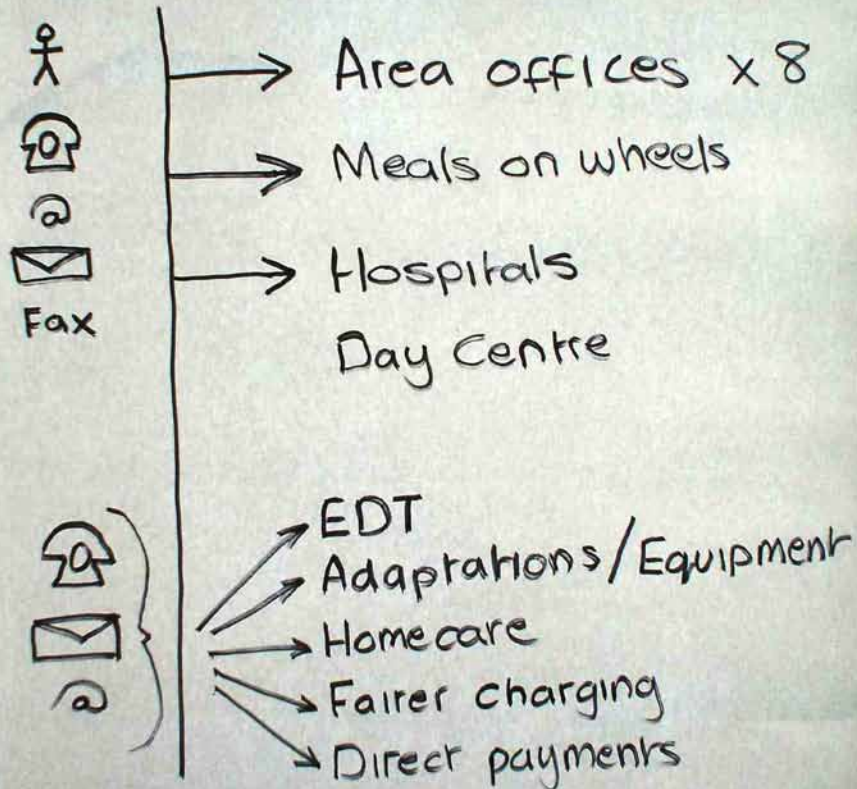 Area offices x 8
Meals on wheels
@
Hospitals
Fax
Day Centre
EDT
Adaptations/Equipment
Homecare
@
Fairer charging
Direct payments